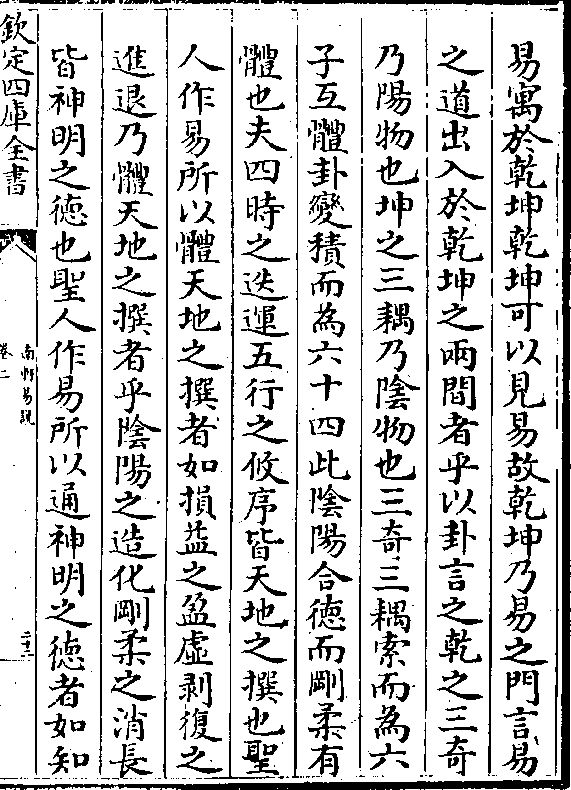 易寓於乾坤乾坤可以見易故乾坤乃易之門言易
之道出入於乾坤之兩間者乎以卦言之乾之三奇
乃陽物也坤之三耦乃陰物也三奇三耦索而為六
子互體卦變積而為六十四此陰陽合德而剛柔有
體也夫四時之迭運五行之攸序皆天地之撰也聖
人作易所以體天地之撰者如損益之盈虛剥復之
進退乃體天地之撰者乎陰陽之造化剛柔之消長
皆神明之德也聖人作易所以通神明之德者如知
欽定四庫全書
南軒易說
卷二
二十三